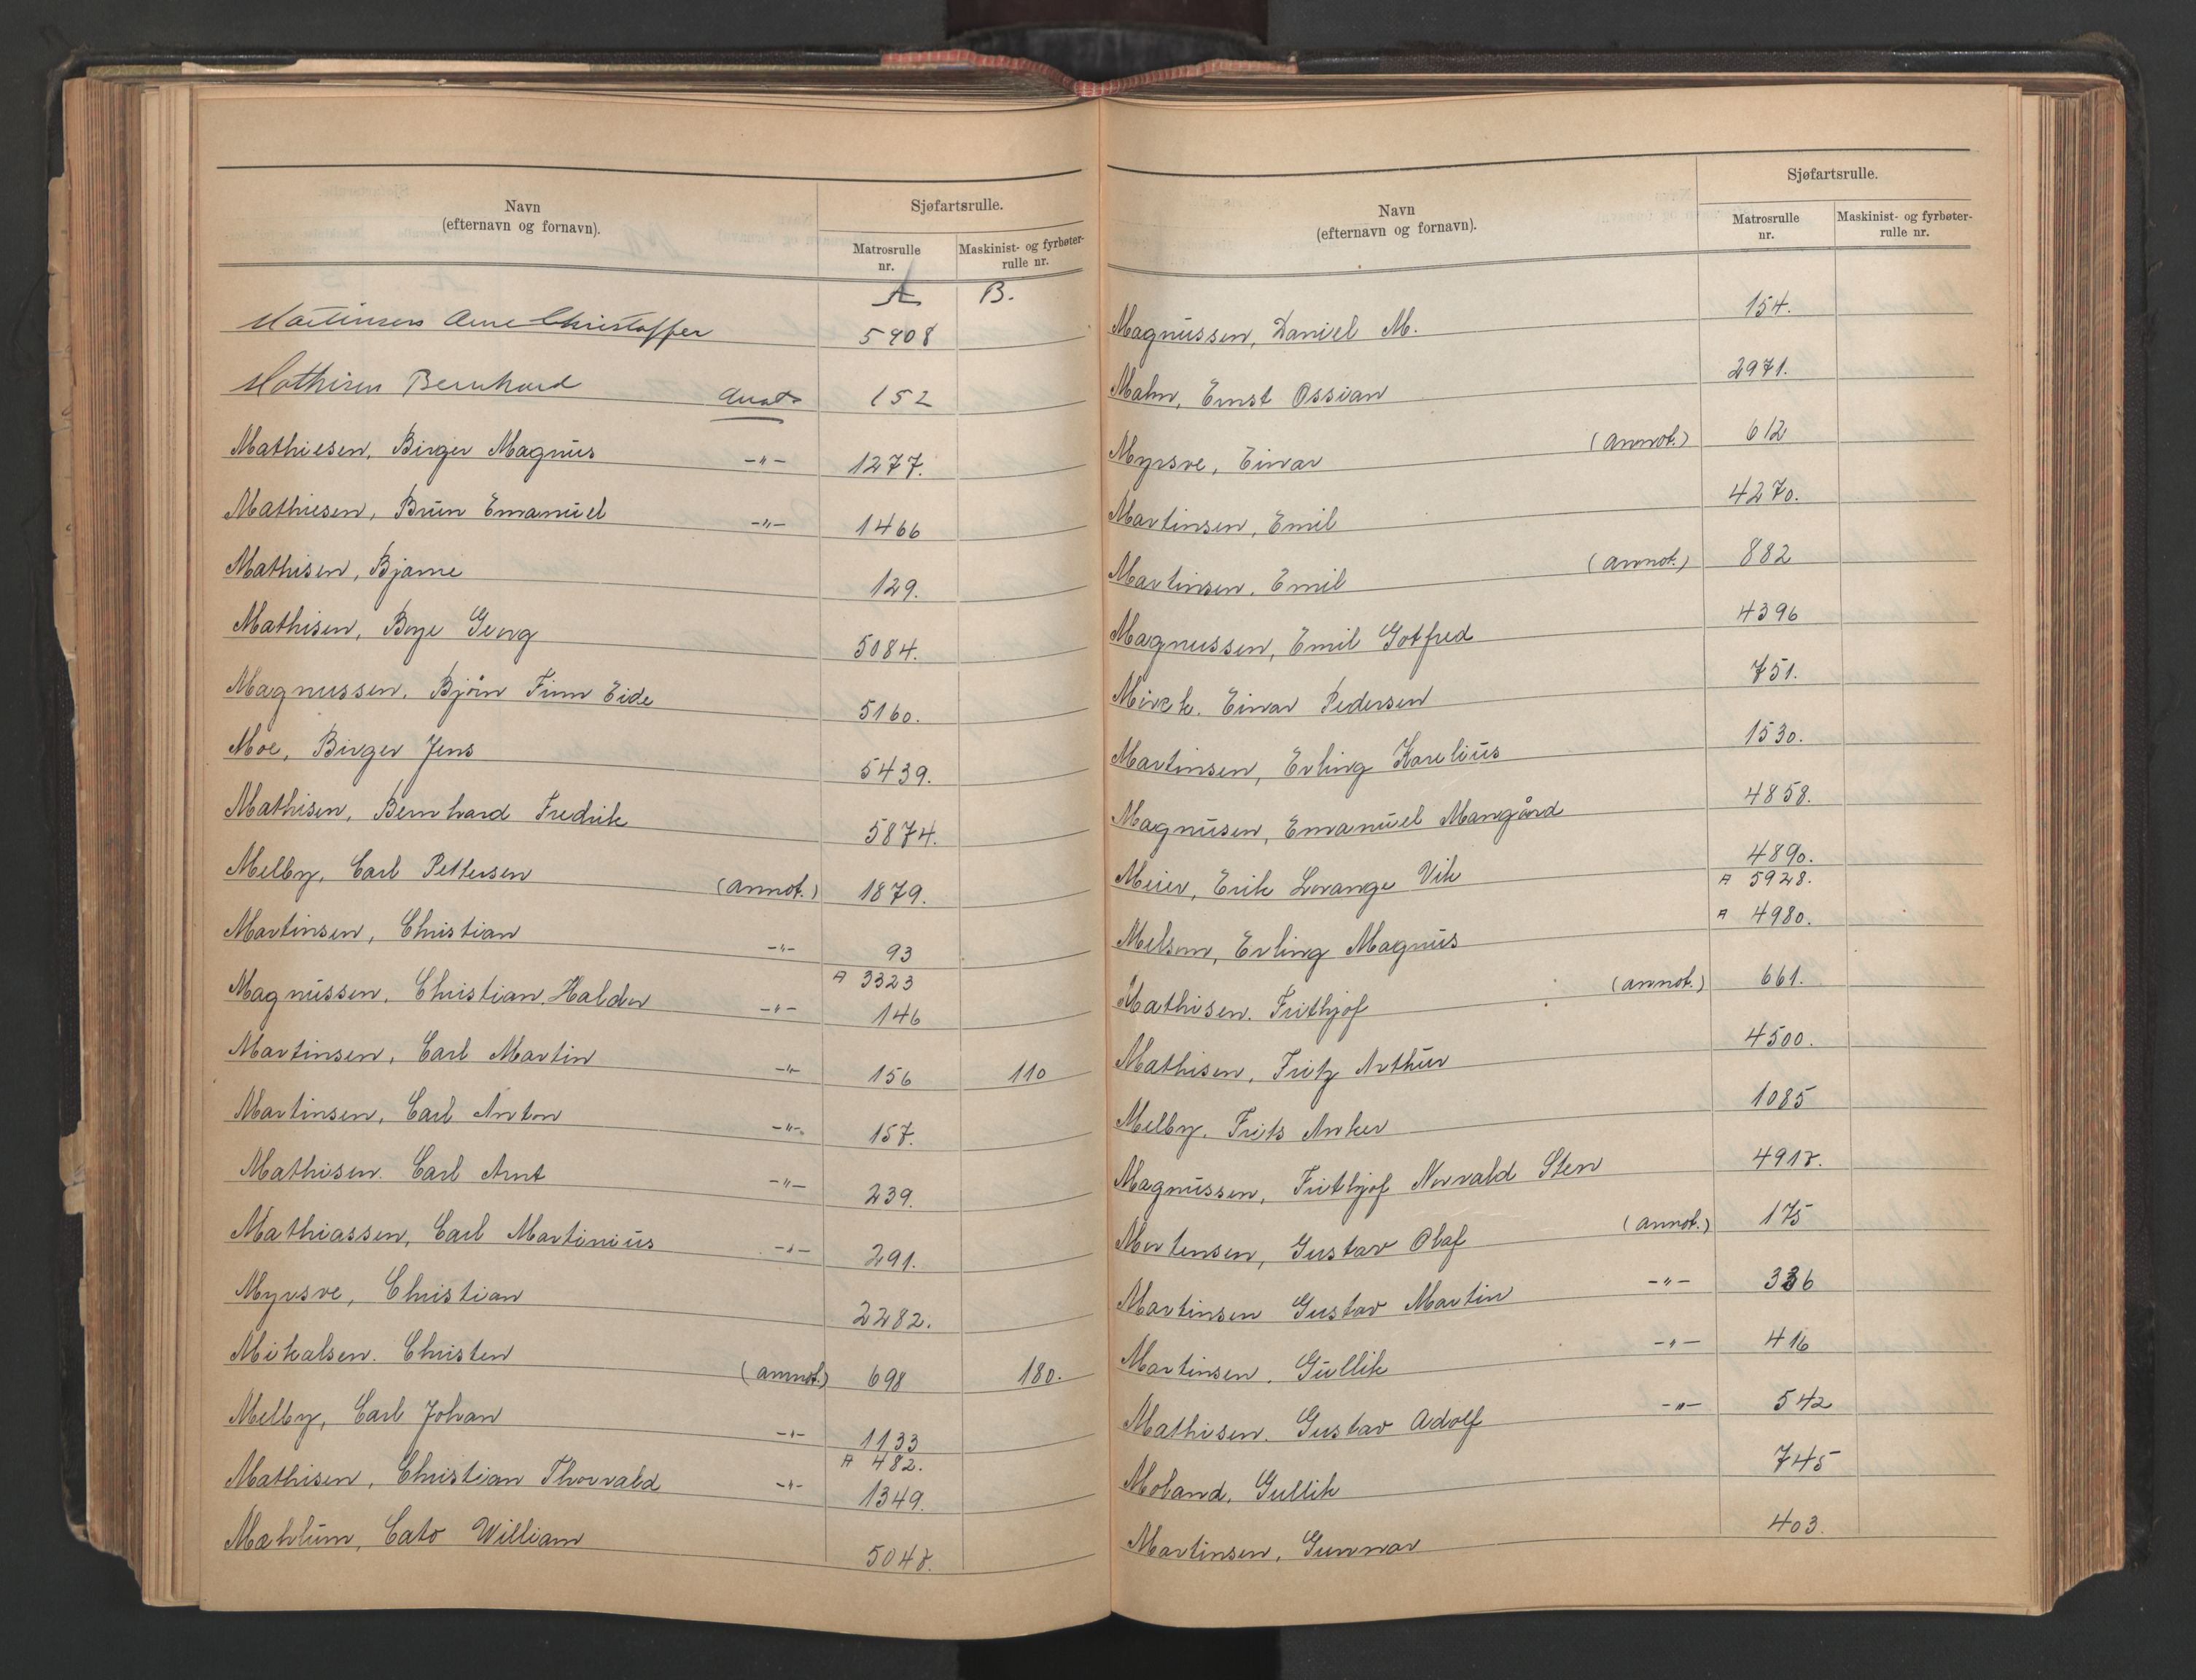 Navn
(efternavn og fornavn).
Sjøfartsrulle.
Matrosrulle nr.
Maskinist- og fyrbøter-rulle nr.
A B.
Martinsen Arne Christoffer 5908
Mathisen Bernhard Anot 152
Mathiesen, Birger Magnus -"- 1277.
Mathiesen, Brun Emanuel -"- 1466
Mathisen, Bjarne 129.
Mathisen, Boye Georg 5084.
Magnussen, Bjørn Finn Eide 5160.
Moe, Birger Jens 5439.
Mathisen, Bernhard Fredrik 5874.
Melby, Carl Pettersen (annot.) 1879.
Martinsen, Christian -"- 93
A 3323
Magnussen, Christian Haldor -"- 146
Martinsen, Carl Martin -"- 156 110
Martinsen, Carl Anton -"- 157.
Mathisen. Carl Arnt -"- 239.
Mathiassen, Carl Martinius -"- 291.
Myrsve, Christian 2282.
Mikalsen. Christen (annot.) 698 180.
Melby, Carl Johan -"- 1133
A 482.
Mathisen, Christian Thorvald -"- 1349.
Mæhlum, Cato William 5047.
Navn
(efternavn og fornavn).
Sjøfartsrulle.
Matrosrulle nr.
Maskinist- og fyrbøter-rulle nr.
Magnussen, Daniel M. 154.
Malm, Ernst Ossian 2971.
Myrsve, Einar (annot.) 612
Martinsen, Emil 4270.
Martinsen, Emil (annot.) 882
Magnussen, Emil Gotfred 4396
Mørch. Einar Pedersen 751.
Martinsen, Erling Karelius 1530.
Magnusen, Emanuel Mangård 4858.
Meier, Erik Lorange Vik 4890.
A 5928.
Melsom, Erling Magnus A 4980.
Mathisen. Frithjof (annot.) 661.
Mathisen, Fritz Arthur 4500.
Melby. Frits Anker 1085
Magnussen, Frithjof Norvald Sten 4917.
Mortensen, Gustav Olaf (annot.) 175
Martinsen Gustav Martin -"- 336
Martinsen, Gullik -"- 416
Mathisen. Gustav Adolf -"- 542
Moland, Gullik 745
Martinsen, Gunnar 403.